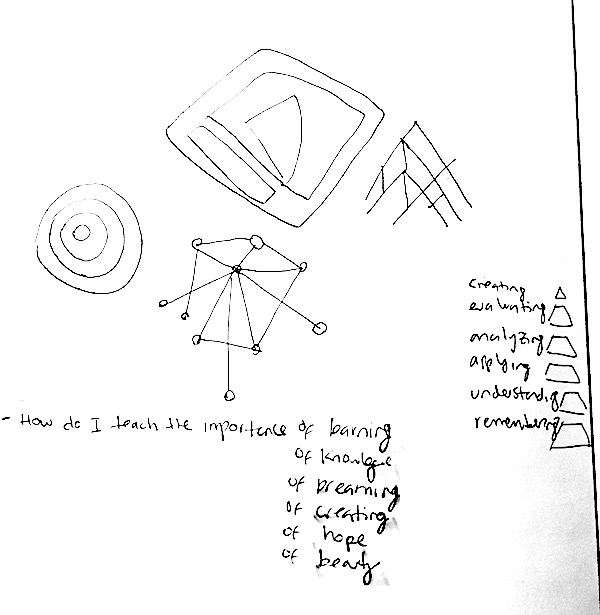 creating
evaluating
analyzing
applying
understanding
remembering
- How do I teach the importance of learning
of knowlege
of Dreaming
of creating
of hope
of beauty